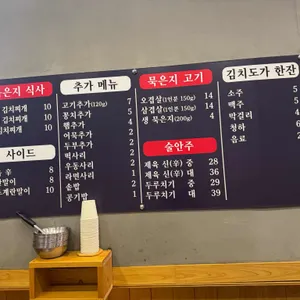 묵은지 식사
김치찌개 10
찌개 10
김치찌개 10
사이드
8
란말이 8
계란말이 10
추가 메뉴
고기추가(120g) 7
꽁치추가 5
햄추가 4
어묵추가 2
두부추가 2
떡사리 2
우동사리 2
라면사리 2
솥밥 2
공기밥 1
묵은지 고기
오겹살(1인분 150g) 14
삼겹살(1인분 150g) 14
생 묵은지(200g) 4
술안주
제육 신(辛) 중 28
제육 신(辛) 대 36
두루치기 중 29
두루치기 대 39
김치도가 한잔
소주 5
맥주 5
막걸리
청하
음료